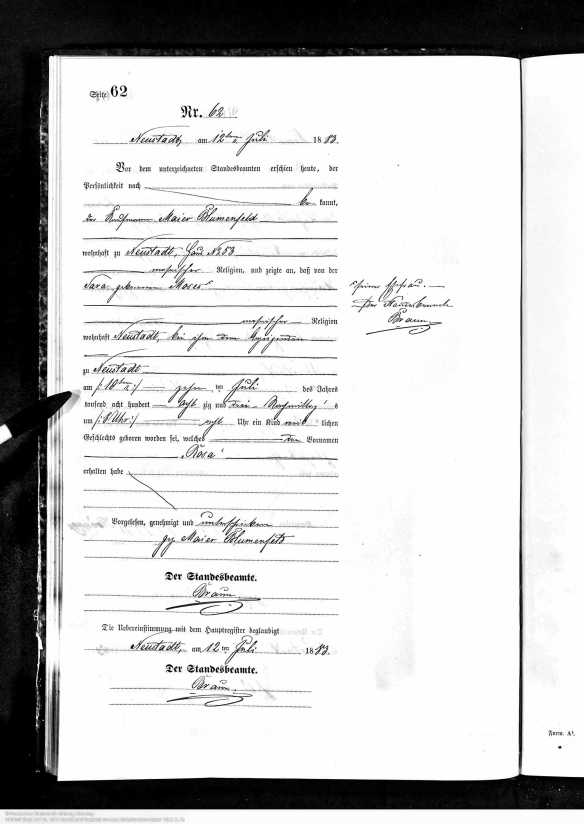 Seite 62
Nr. 62
Neustadt, am 12ten Juli 1883.
Vor dem unterzeichneten Standesbeamten erschien heute, der
Persönlichkeit nach
be kannt,
der Kaufmann Maier Blumenfeld
wohnhaft zu Neustadt, Haus No 53
mosaischer Religion, und zeigte an, daß von der
Sara geborenen Moses
seiner Ehefrau.
Der Standesbeamte
Braun
mosaischer Religion
wohnhaft Neustadt, bei ihm dem
zu Neustadt
am /:10ten:/ zehn ten Juli des Jahres
tausend acht hundert acht zig und drei Nachmittags
um /:8 Uhr:/ acht Uhr ein Kind weib lichen
Geschlechts geboren worden sei, welches den Vornamen
"Rosa"
erhalten habe
Vorgelesen, genehmigt und unterschrieben
gz Maier Blumenfeld
Der Standesbeamte.
Braun
Die Uebereinstimmung mit dem Hauptregister beglaubigt
Neustadt, am 12ten Juli 1883.
Der Standesbeamte.
Braun.
Form. A¹.